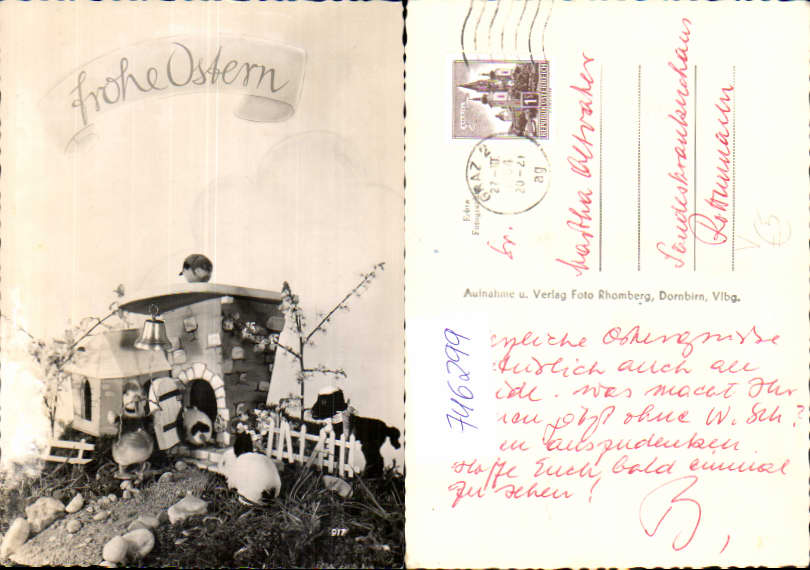 frohe Ostern
917
REPUBLIK ÖSTERREICH
GRAZ 2
20-21
ag
Echte
Sr.
Martha Altvater
Landeskrankenhaus
Rottenmann
Aufnahme u. Verlag Foto Rhomberg, Dornbirn, Vlbg.
746299
Ostergrüsse
auch an
was macht Ihr
ohne W. Sch?
auszudenken
Hoffe Euch bald einmal
zu sehen!
B,